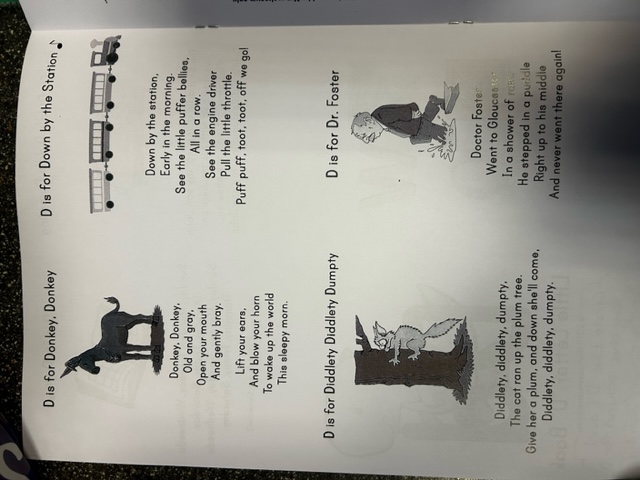 D is for Donkey, Donkey
Donkey, Donkey,
Old and gray,
Open your mouth
And gently bray.
Lift your ears.
And blow your horn
To wake up the world
This sleepy morn.
D is for Down by the Station
Down by the station,
Early in the morning.
See the little puffer bellies,
All in a row,
See the engine driver
Pull the little throttle.
Puff puff, toot, toot, off we go!
D is for Diddlety Diddlety Dumpty
Diddlety, diddlety, dumpty,
The cat ran up the plum tree.
Give her a plum, and down she'll come,
Diddlety, diddlety, dumpty.
D is for Dr. Foster
Doctor Foster
Went to Gloucester
In a shower of
He stepped in a puddle
Right up to his middle
And never went there again!